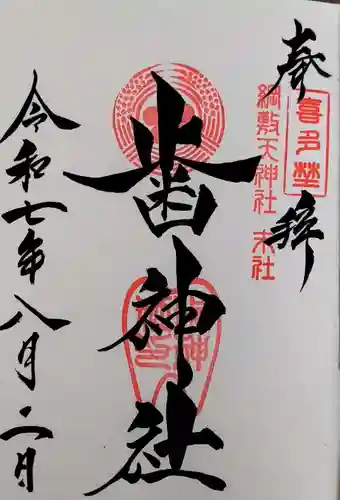 奉拝
喜多埜
綱敷天神社 末社
歯神社
令和七年八月二日